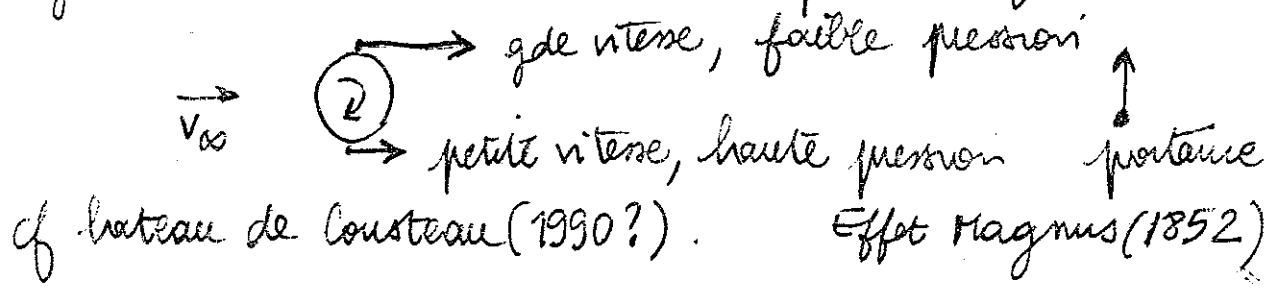 gde vitesse, faible pression
v∞
petite vitesse, haute pression portance
cf bateau de Cousteau (1990?). Effet Magnus (1852)